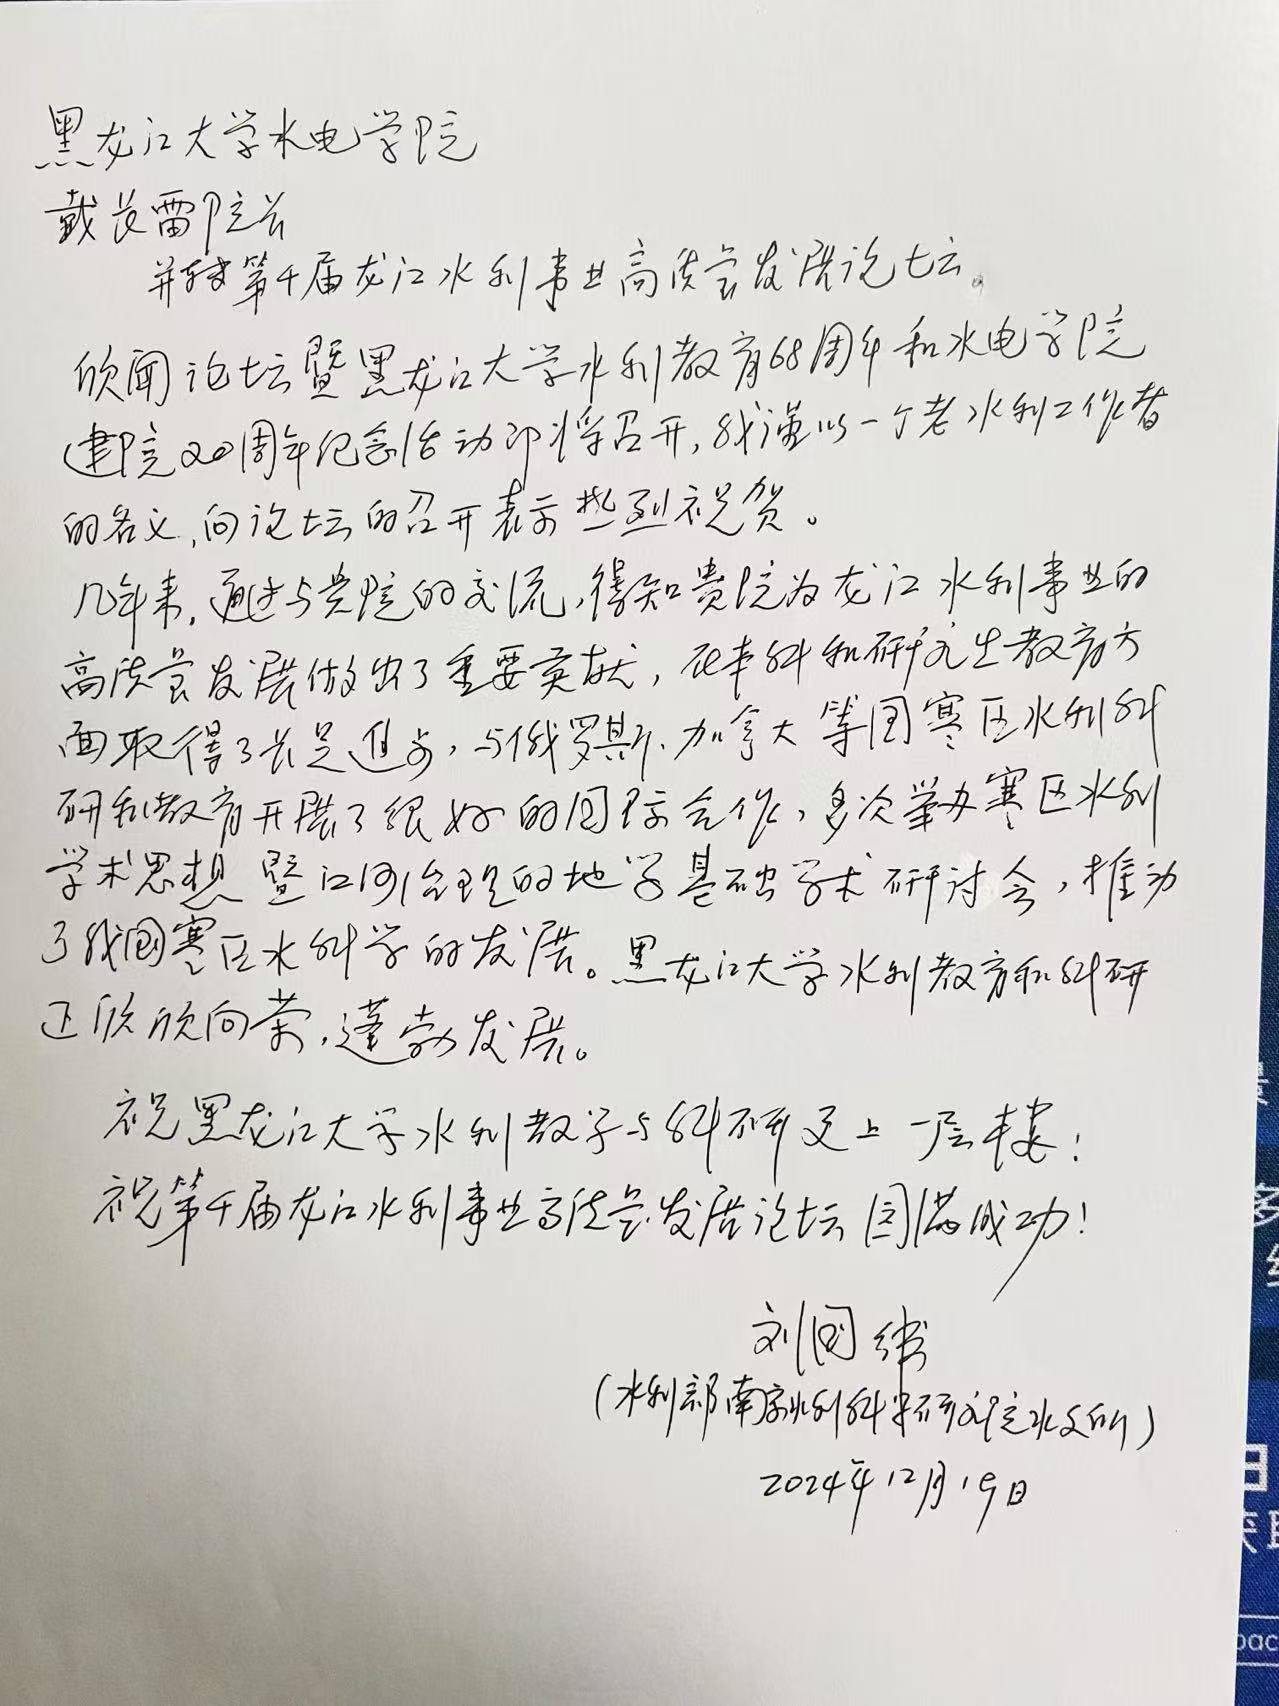 黑龙江大学水电学院
戴长雷院长
并转第十届龙江水利事业高质量发展论坛。
欣闻论坛暨黑龙江大学水利教育68周年和水电学院
建院20周年纪念活动即将召开,我谨以一个老水利工作者
的名义,向论坛的召开表示热烈祝贺。
几年来,通过与贵院的交流,得知贵院为龙江水利事业的
高质量发展做出了重要贡献,在本科和研究生教育方
面取得了长足进步,与俄罗斯、加拿大等国寒区水利科
研和教育开展了很好的国际合作,多次举办寒区水利
学术思想暨江河治理的地学基础学术研讨会,推动
了我国寒区水科学的发展。黑龙江大学水利教育和科研
正欣欣向荣,蓬勃发展。
祝黑龙江大学水利教学与科研更上一层楼!
祝第十届龙江水利事业高质量发展论坛圆满成功!
刘国纬
(水利部南京水利科学研究院水文所)
2024年12月19日